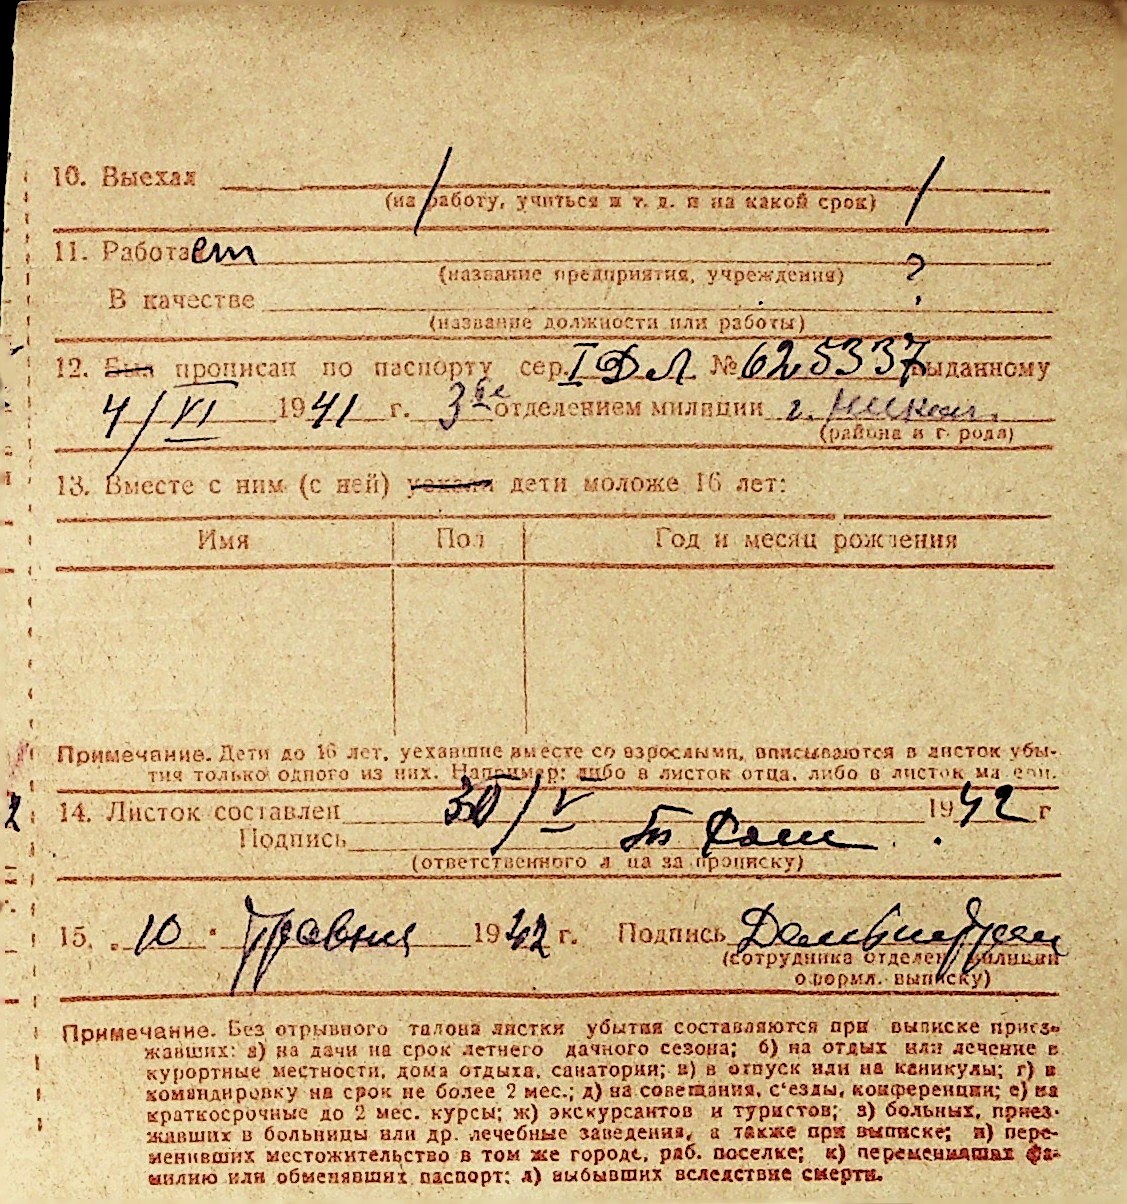 10. Выехал
(на работу, учиться и т. д. и на какой срок)
11. Работает
(название предприятия, учреждения) ?
В качестве
(название должности или работы)
12. Был прописан по паспорту сер. I ДЛ № 625337 выданному
4/VI 1941 г. 3 отделением милиции г. Никол.
(района и города)
13. Вместе с ним (с ней) уехали дети моложе 16 лет:
Имя Пол Год и месяц рождения
Примечание. Дети до 16 лет, уехавшие вместе со взрослыми, вписываются в листок убы-
тия только одного из них. Например: либо в листок отца, либо в листок матери.
14. Листок составлен 30/V 1942 г
Подпись
(ответственного лица за прописку)
15. 10 травня 1942 г. Подпись
(сотрудника отделен. милиции
оформл. выписку)
Примечание. Без отрывного талона листки убытия составляются при выписке приез-
жавших: а) на дачи на срок летнего дачного сезона; б) на отдых или лечение в
курортные местности, дома отдыха, санатории; в) в отпуск или на каникулы; г) в
командировку на срок не более 2 мес.; д) на совещания, с'езды, конференции; е) на
краткосрочные до 2 мес. курсы; ж) экскурсантов и туристов; з) больных, приез-
жавших в больницы или др. лечебные заведения, а также при выписке; и) пере-
менивших местожительство в том же городе, раб. поселке; к) переменивших фа-
милию или обменявших паспорт; л) выбывших вследствие смерти.